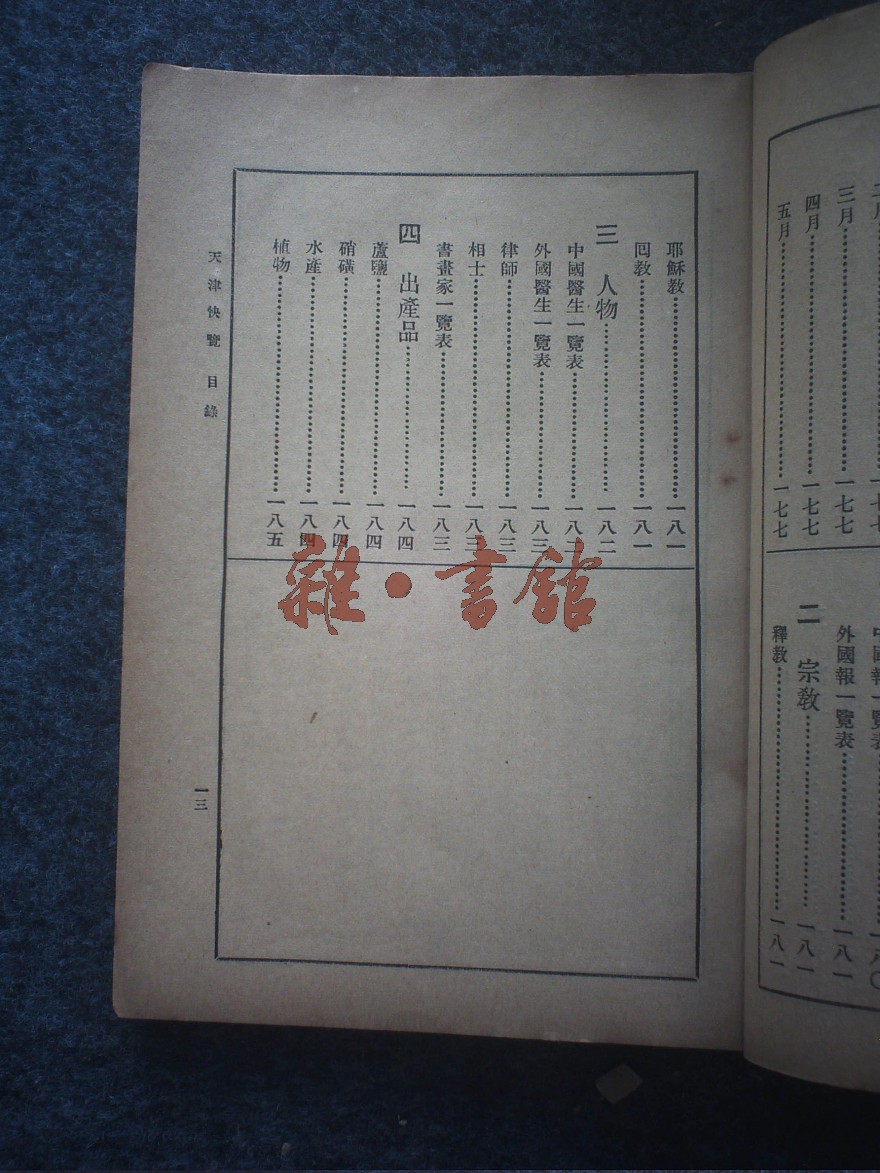 三月……一七七
四月……一七七
五月……一七七
外國報一覽表……一八一
二 宗教……一八一
釋教……一八一
耶穌教……一八一
囘教……一八一
三 人物……一八二
中國醫生一覽表……一八二
外國醫生一覽表……一八三
律師……一八三
相士……一八三
書畫家一覽表……一八三
四 出產品……一八四
蘆鹽……一八四
硝磺……一八四
水產……一八四
植物……一八五
天津快覽 目錄
一三
雜·書館